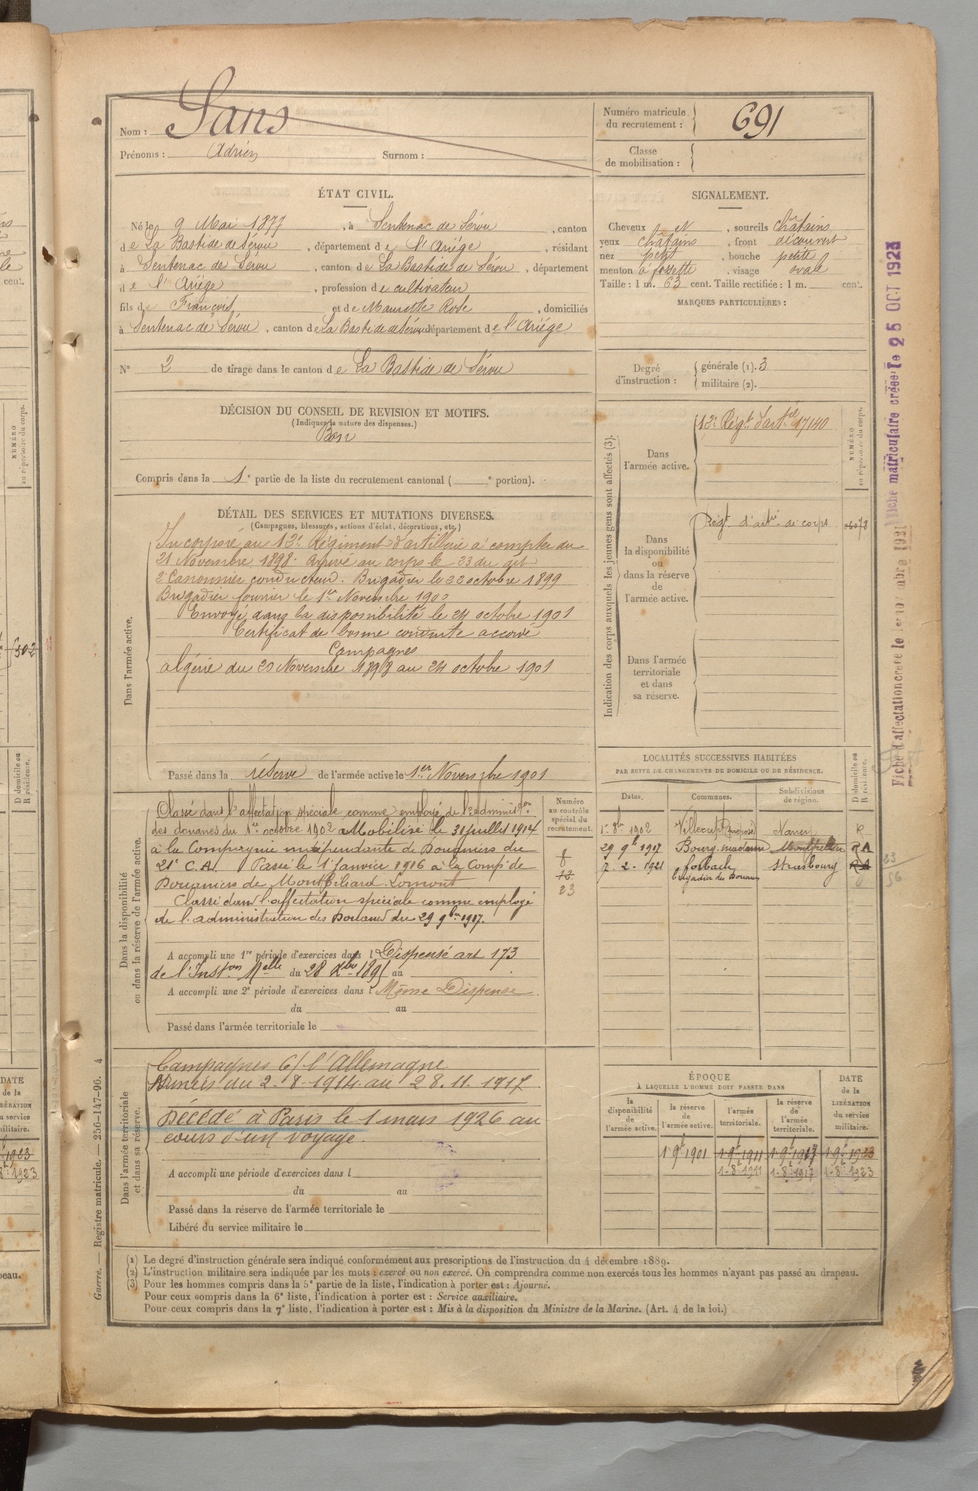 Nom : Sans
Prénoms : Adrien Surnom :
Numéro matricule du recrutement : 691
Classe de mobilisation :
ÉTAT CIVIL.
Né le 9 Mai 1877, à Sentenac de Sérou, canton
de La Bastide de Sérou, département de l'Ariége, résidant
à Sentenac de Sérou, canton de La Bastide de Sérou, département
de l'Ariége, profession de cultivateur
fils de François et de Maurette Rose, domiciliés
à Sentenac de Sérou, canton de La Bastide de Sérou département de l'Ariége
N° 2 de tirage dans le canton de La Bastide de Sérou
SIGNALEMENT.
Cheveux N, sourcils châtains
yeux châtains, front découvert
nez petit, bouche petite
menton à fossette, visage ovale
Taille : 1 m. 63 cent. Taille rectifiée : 1 m. cent.
MARQUES PARTICULIÈRES :
Degré d'instruction : générale (1). 3
militaire (2).
DÉCISION DU CONSEIL DE REVISION ET MOTIFS.
(Indiquer la nature des dispenses.)
Bon
Compris dans la 1e partie de la liste du recrutement cantonal ( e portion).
DÉTAIL DES SERVICES ET MUTATIONS DIVERSES.
(Campagnes, blessures, actions d'éclat, décorations, etc.)
Dans l'armée active.
Incorporé au 12e Régiment d'artillerie à compter du
21 Novembre 1898. Arrivé au corps le 23 du dit
2e Canonnier conducteur. Brigadier le 22 octobre 1899
Brigadier fourrier le 1er Novembre 1900
Envoyé dans la disponibilité le 24 octobre 1901
Certificat de bonne conduite accordé
Campagnes
Algérie du 20 Novembre 1898 au 24 octobre 1901
Passé dans la réserve de l'armée active le 1er Novembre 1901
Indication des corps auxquels les jeunes gens sont affectés (3).
NUMÉRO au répertoire du corps.
Dans l'armée active.
12e Régt d'artie 17140
Dans la disponibilité ou dans la réserve de l'armée active.
Régt d'artie de corps
Dans l'armée territoriale et dans sa réserve.
Dans la disponibilité ou dans la réserve de l'armée active.
Classé dans l'affectation spéciale comme employé de l'administron
des douanes du 1er octobre 1902 Mobilisé le 31 juillet 1914
à la Compagnie indépendante de Douaniers du
21e C.A. Passé le 1 janvier 1916 à la Comp. de
Douaniers de Montbéliard Lomont
Classé dans l'affectation spéciale comme employé
de l'administration des Douanes du 29 9bre 1917.
A accompli une 1re période d'exercices dans l Dispensé art 173
de l'Instron Melle du 28 Xbre 1895 au
A accompli une 2e période d'exercices dans l Même Dispense
du au
Passé dans l'armée territoriale le
Numéro au contrôle spécial du recrutement.
8
23
LOCALITÉS SUCCESSIVES HABITÉES
PAR SUITE DE CHANGEMENTS DE DOMICILE OU DE RÉSIDENCE.
Dates. Communes. Subdivisions de région. D domicile ou R résidence.
1-8bre 1902 Nancy R
29 9bre 1917 Bourg-madame Montpellier RA
7-2-1921 Forbach Strasbourg RA
brigadier des Douanes
Dans l'armée territoriale et dans sa réserve.
Campagnes C/ l'Allemagne
Armées du 2.8.1914 au 28.11.1917
Décédé à Paris le 1 mars 1926 au
cours d'un voyage.
A accompli une période d'exercices dans l
du au
Passé dans la réserve de l'armée territoriale le
Libéré du service militaire le
ÉPOQUE
À LAQUELLE L'HOMME DOIT PASSER DANS
DATE de la LIBÉRATION du service militaire.
la disponibilité de l'armée active. la réserve de l'armée active. l'armée territoriale. la réserve de l'armée territoriale.
1 9bre 1901 1 9bre 1911 1 9bre 1917 1 9bre 1923
1-8bre 1911 1-8bre 1917 1-8bre 1923
(1) Le degré d'instruction générale sera indiqué conformément aux prescriptions de l'instruction du 4 décembre 1889.
(2) L'instruction militaire sera indiquée par les mots : exercé ou non exercé. On comprendra comme non exercés tous les hommes n'ayant pas passé au drapeau.
(3) Pour les hommes compris dans la 5e partie de la liste, l'indication à porter est : Ajourné.
Pour ceux compris dans la 6e liste, l'indication à porter est : Service auxiliaire.
Pour ceux compris dans la 7e liste, l'indication à porter est : Mis à la disposition du Ministre de la Marine. (Art. 4 de la loi.)
Guerre. Registre matricule. — 256-147-96. 4
Fiche matriculaire créée le 25 OCT 1923
Fiche d'affectation créée le 1er novembre 1921